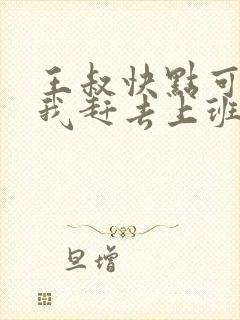 王叔快點可
我赶去上班
旦增